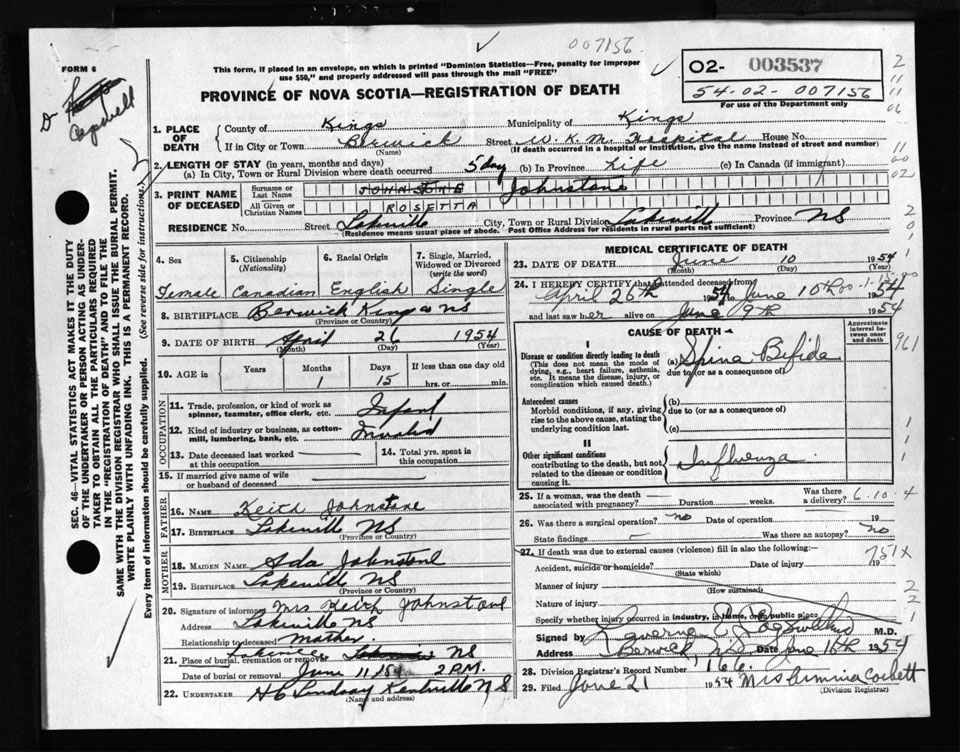 007156
FORM 6
This form, if placed in an envelope, on which is printed "Dominion Statistics—Free, penalty for improper
use $50," and properly addressed will pass through the mail "FREE"
PROVINCE OF NOVA SCOTIA—REGISTRATION OF DEATH
02- 003537
54-02-007156
For use of the Department only
Dr Cogswell
SEC. 46—VITAL STATISTICS ACT MAKES IT THE DUTY
OF THE UNDERTAKER OR PERSON ACTING AS UNDER-
TAKER TO OBTAIN ALL THE PARTICULARS REQUIRED
IN THE "REGISTRATION OF DEATH" AND TO FILE THE
SAME WITH THE DIVISION REGISTRAR WHO SHALL ISSUE THE BURIAL PERMIT.
WRITE PLAINLY WITH UNFADING INK. THIS IS A PERMANENT RECORD.
Every item of information should be carefully supplied. (See reverse side for instructions.)
1. PLACE OF DEATH
County of Kings Municipality of Kings
If in City or Town Berwick Street W. K. M. Hospital House No.
(Name) (If death occurred in a hospital or institution, give the name instead of street and number)
2. LENGTH OF STAY (in years, months and days)
(a) In City, Town or Rural Division where death occurred 5 day (b) In Province Life (c) In Canada (if immigrant)
3. PRINT NAME OF DECEASED
Surname or Last Name JOHNSTONE Johnstone
All Given or Christian Names ROSETTA
RESIDENCE No. Street Lakeville City, Town or Rural Division Lakeville Province NS
(Residence means usual place of abode. Post Office Address for residents in rural parts not sufficient)
4. Sex Female
5. Citizenship (Nationality) Canadian
6. Racial Origin English
7. Single, Married, Widowed or Divorced (write the word) Single
8. BIRTHPLACE Berwick Kings NS
(Province or Country)
9. DATE OF BIRTH April 26 1954
(Month) (Day) (Year)
10. AGE in Years Months 1 Days 15 If less than one day old hrs. or min.
OCCUPATION
11. Trade, profession, or kind of work as spinner, teamster, office clerk, etc. Infant
12. Kind of industry or business, as cotton-mill, lumbering, bank, etc. Invalid
13. Date deceased last worked at this occupation
14. Total yrs. spent in this occupation
15. If married give name of wife or husband of deceased
FATHER
16. NAME Keith Johnstone
17. BIRTHPLACE Lakeville NS
(Province or Country)
MOTHER
18. MAIDEN NAME Ada Johnstone
19. BIRTHPLACE Lakeville NS
(Province or Country)
20. Signature of informant Mrs Keith Johnstone
Address Lakeville NS
Relationship to deceased mother.
21. Place of burial, cremation or removal Lakeville NS
Date of burial or removal June 11, 1954 2 P.M.
22. UNDERTAKER H C Lindsay Kentville NS
(Name and address)
MEDICAL CERTIFICATE OF DEATH
23. DATE OF DEATH June 10 1954
(Month) (Day) (Year)
24. I HEREBY CERTIFY that I attended deceased from
April 26th 1954 to June 10th 1954
and last saw her alive on June 9th 1954
CAUSE OF DEATH
Approximate interval between onset and death
I
Disease or condition directly leading to death
(This does not mean the mode of dying, e.g., heart failure, asthenia, etc. It means the disease, injury, or complication which caused death.)
(a) Spina Bifida
due to (or as a consequence of)
Antecedent causes
Morbid conditions, if any, giving rise to the above cause, stating the underlying condition last.
(b)
due to (or as a consequence of)
(c)
II
Other significant conditions
contributing to the death, but not related to the disease or condition causing it.
Influenza
961
25. If a woman, was the death associated with pregnancy? Duration weeks. Was there a delivery? 6-10-4
26. Was there a surgical operation? no Date of operation 19
State findings - Was there an autopsy? no
27. If death was due to external causes (violence) fill in also the following:—
751X
Accident, suicide or homicide? Date of injury 19
(State which)
Manner of injury
(How sustained)
Nature of injury
Specify whether injury occurred in industry, in home, or public place
Signed by Laverne Cogswell M.D.
Address Berwick, NS Date June 16th 1954
28. Division Registrar's Record Number 166.
29. Filed June 21 1954
(Division Registrar)